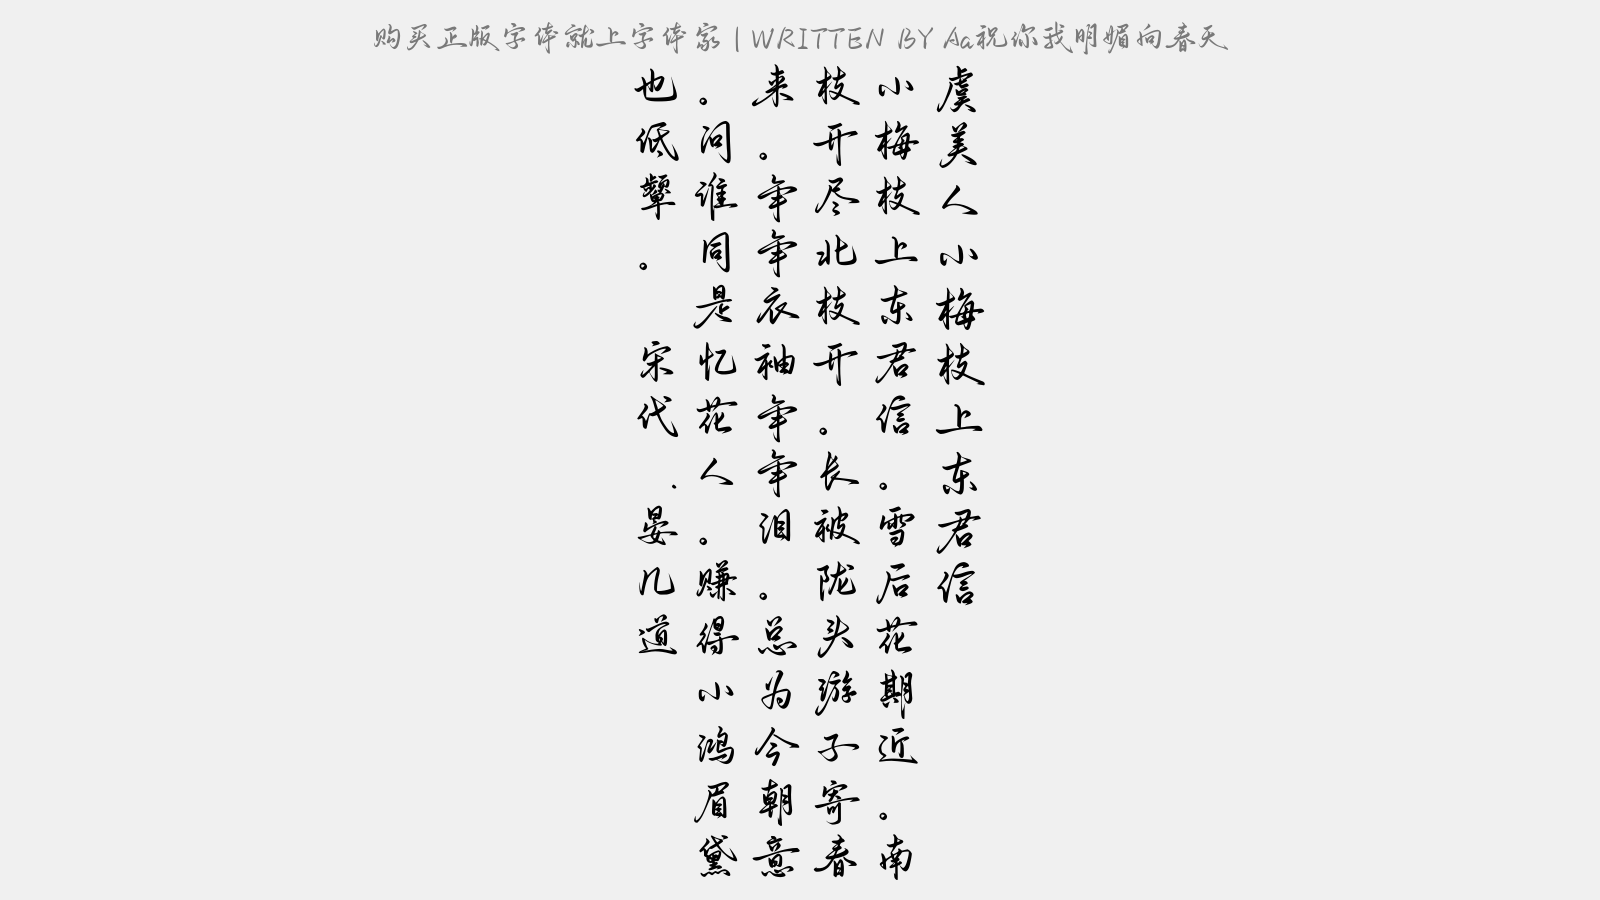 购买正版字体就上字体家 | WRITTEN BY Aa祝你我明媚向春天
虞美人小梅枝上东君信
小梅枝上东君信。雪后花期近。南
枝开尽北枝开。长被陇头游子寄春
来。争争衣袖争争泪。总为今朝意
。问谁同是忆花人。赚得小鸿眉黛
也低颦。 宋代.晏几道